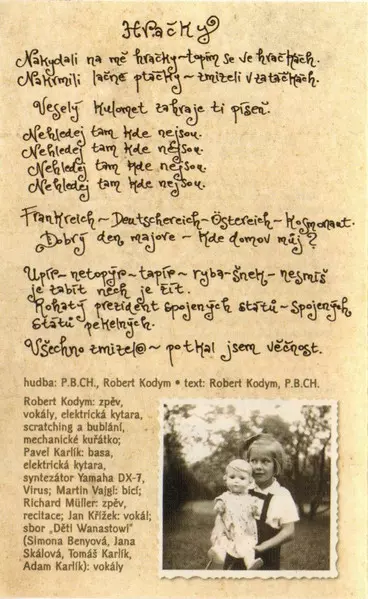 Hračky
Nakydali na mě hračky~topím se ve hračkách.
Nakrmili lačné ptáčky~zmizeli v zatáčkách.
Veselý kulomet zahraje ti píseň.
Nehledej tam kde nejsou.
Nehledej tam kde nejsou.
Nehledej tam kde nejsou.
Nehledej tam kde nejsou.
Frankreich~Deutschereich~Östereich~Kosmonaut.
Dobrý den, majore~Kde domov můj?
Upír~netopýr~tapír~ryba~šnek~nesmíš
je zabít nech je žít.
Rohatý prezident spojených států~Spojených
států pekelných.
Všechno zmizel@~potkal jsem věčnost.
hudba: P.B.CH., Robert Kodym • text: Robert Kodym, P.B.CH.
Robert Kodym: zpěv,
vokály, elektrická kytara,
scratching a bublání,
mechanické kuřátko;
Pavel Karlík: basa,
elektrická kytara,
syntezátor Yamaha DX-7,
Virus; Martin Vajgl: bicí;
Richard Müller: zpěv,
recitace; Jan Křížek: vokál;
sbor „Děti Wanastowi"
(Simona Benyová, Jana
Skálová, Tomáš Karlík,
Adam Karlík): vokály